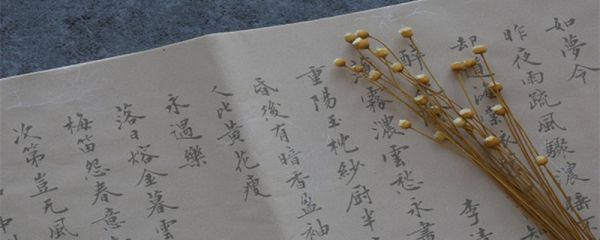 如夢令
昨夜雨疏風驟濃睡不
却道海棠依
醉 李清
薄霧濃雲愁永晝
重陽玉枕紗厨半
昏後有暗香盈袖
人比黃花瘦
永遇樂
落日熔金暮雲
梅笛怨春意
次第豈无風
中